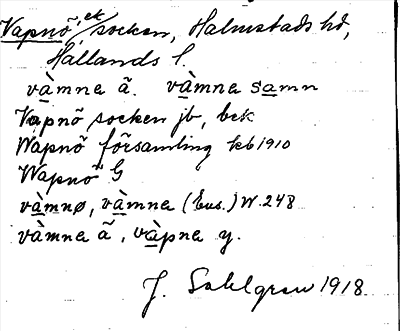 Vapnö, ek socken, Halmstads hd,
Hallands l.
và̱mne ä. và̱mne sa̱mn
Vapnö socken jb, bek
Wapnö församling kb 1910
Wapnö G
và̱mnø, và̱mne (Eus.) W. 248
và̱mne ä, và̱pne y.
J. Sahlgren 1918